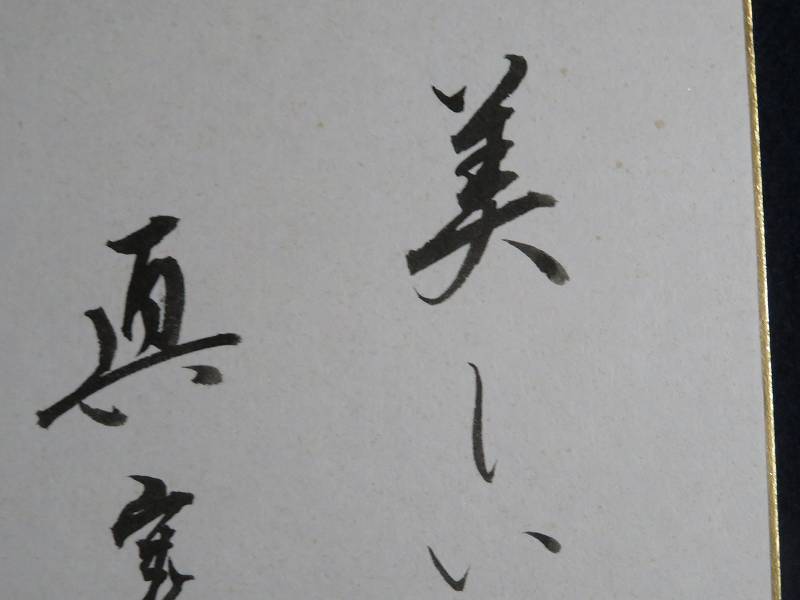 美しい
真実